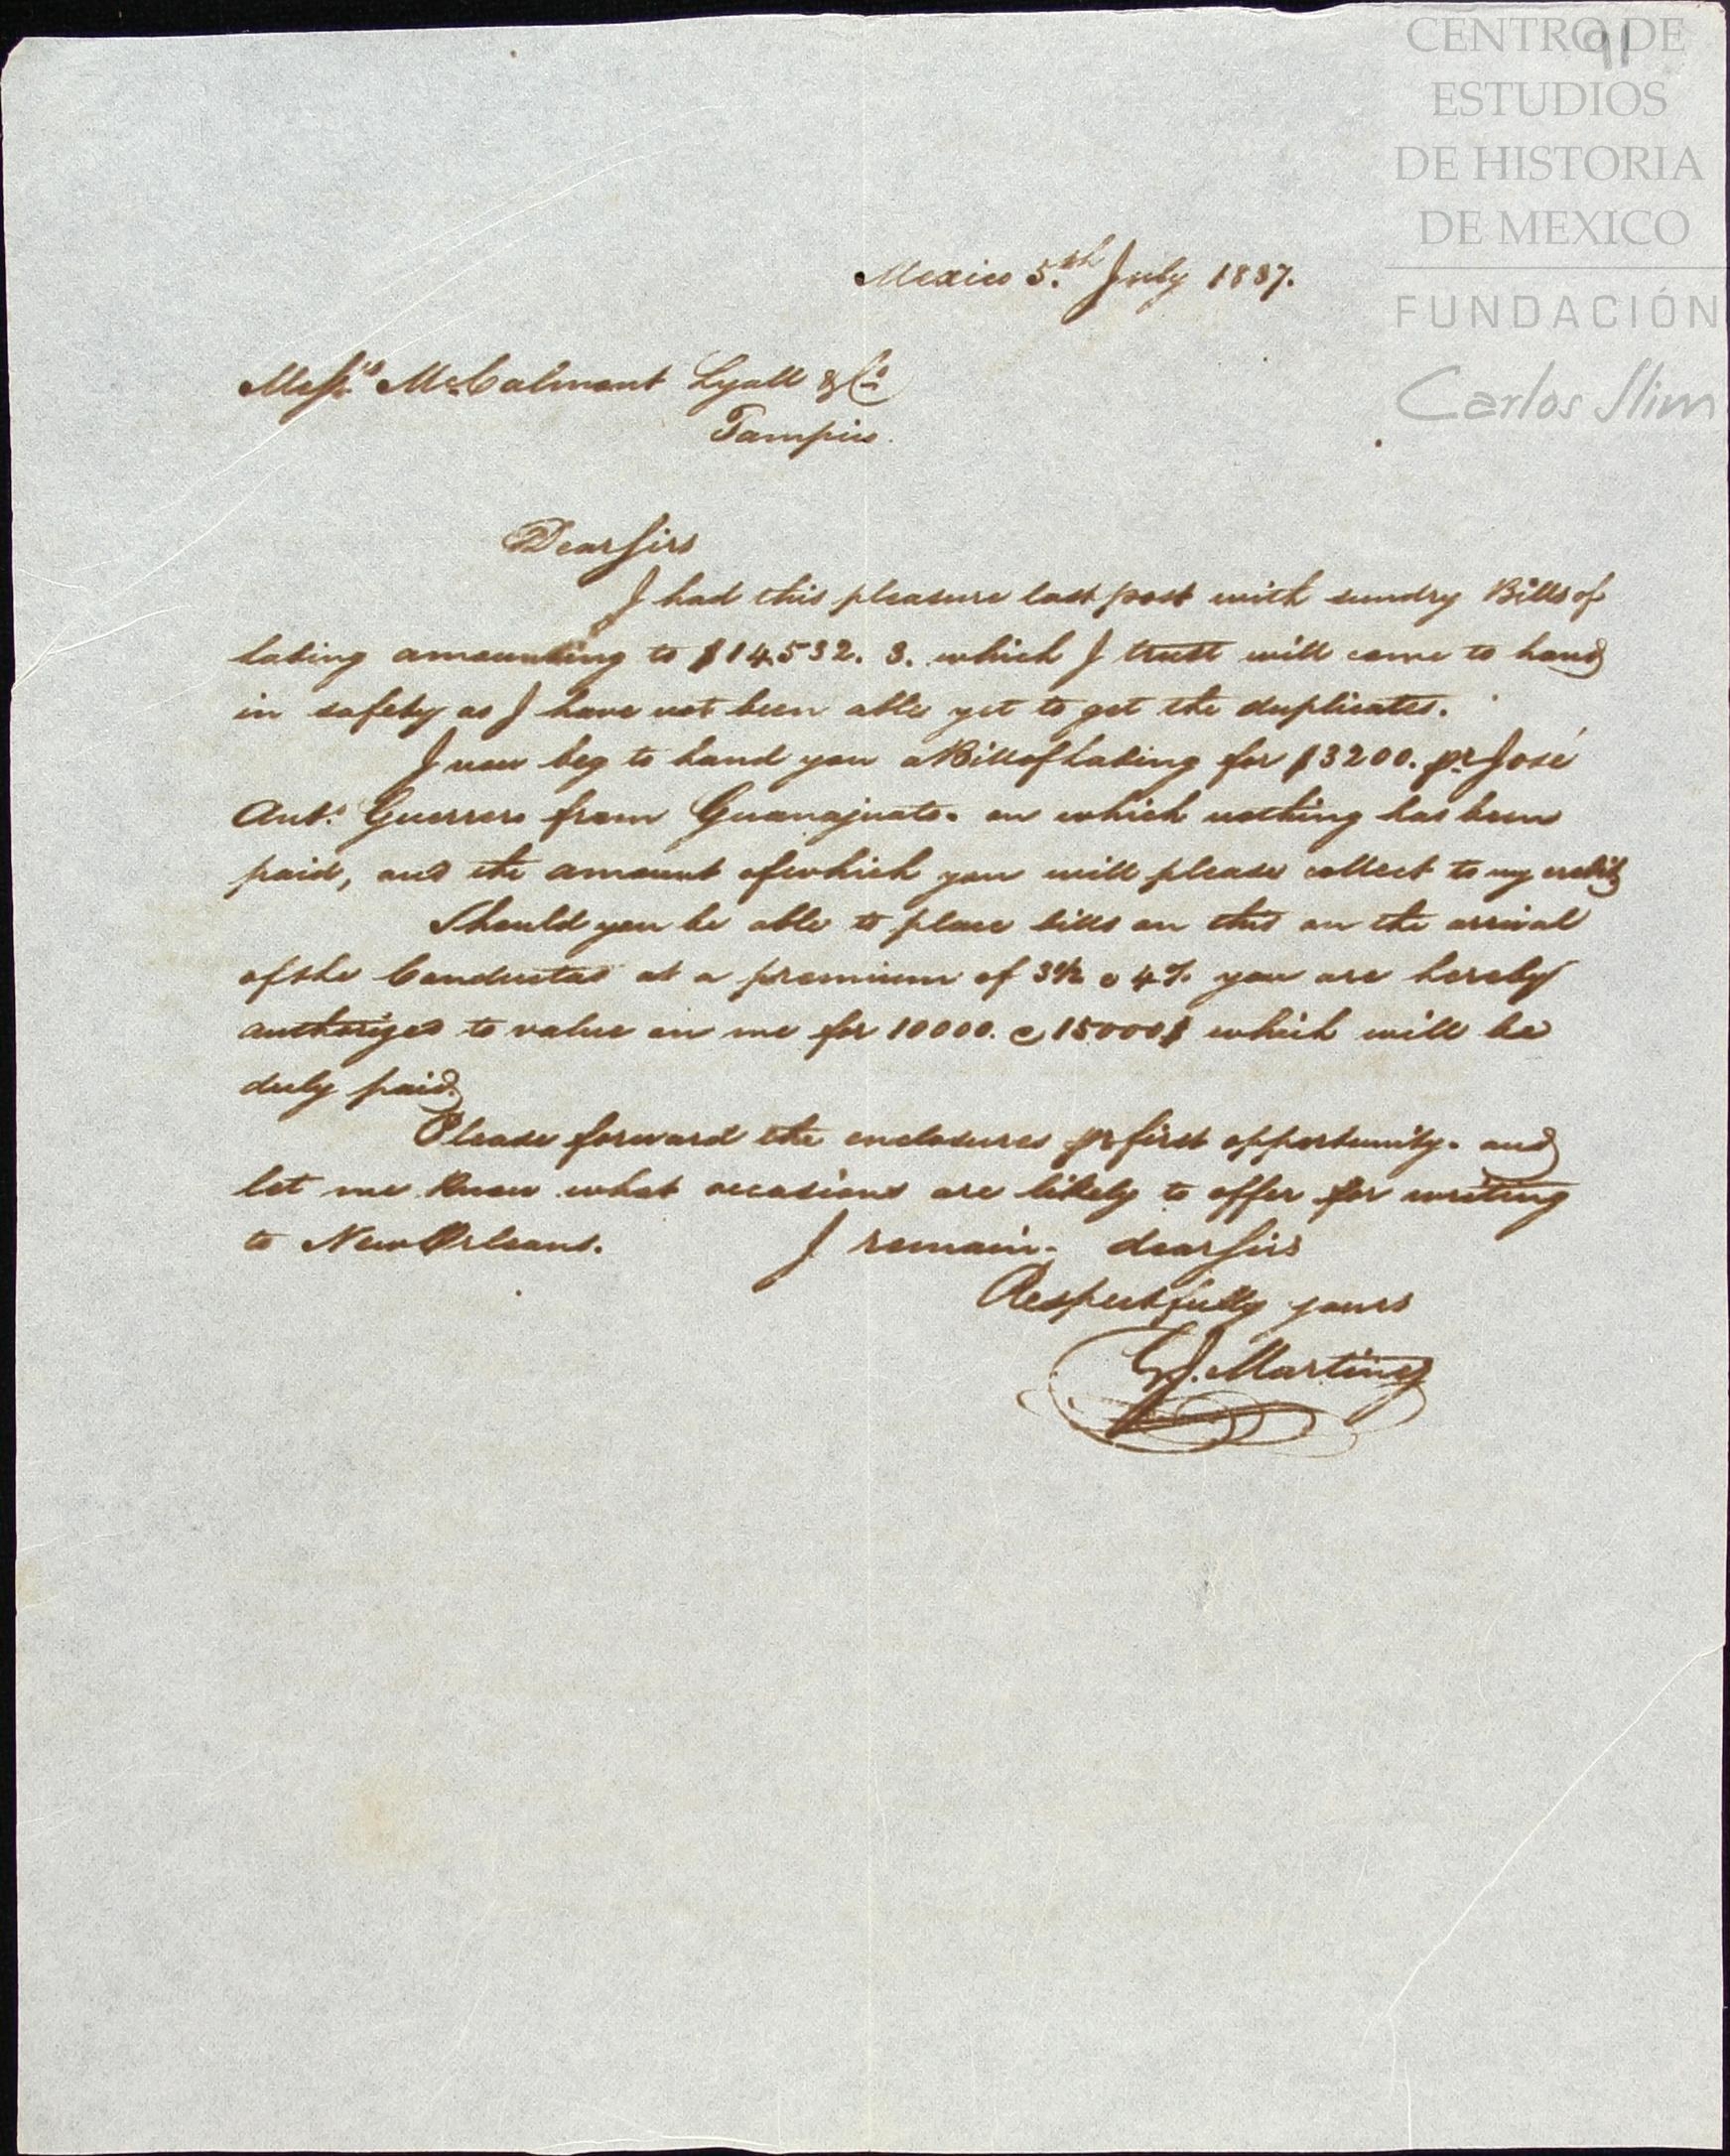 91
CENTRO DE
ESTUDIOS
DE HISTORIA
DE MEXICO
FUNDACIÓN
Carlos Slim
Mexico 5.th July 1837.
Messrs McCalmont Lyall & Co
Tampico.
Dear Sirs
I had this pleasure last post with sundry Bills of
lading amounting to $14,532. 3. which I trust will come to hand
in safety as I have not been able yet to get the duplicates.
I now beg to hand you a Bill of Lading for $3200. pr José
Anto. Guerrero from Guanajuato. on which nothing has been
paid, and the amount of which you will please collect to my credit
Should you be able to place bills on this on the arrival
of the Conductas at a premium of 3½ @ 4% you are hereby
authorized to value on me for 10000. @ 15000$ which will be
duly paid.
Please forward the enclosures pr first opportunity. and
let me know what occasions are likely to offer for writing
to New Orleans. I remain. dear Sirs
Respectfully yours
G J. Martinez